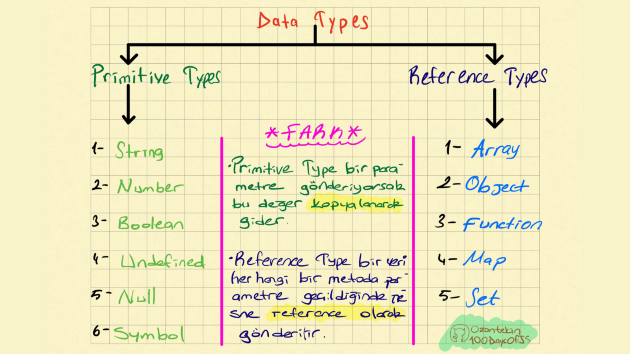 Data Types
Primitive Types
Reference Types
1- String
2- Number
3- Boolean
4- Undefined
5- Null
6- Symbol
*FARK*
•Primitive Type bir para-
metre gönderiyorsak
bu değer kopyalanarak
gider.
•Reference Type bir veri
herhangi bir metoda par-
ametre geçildiğinde ne
sne reference olarak
gönderilir.
1- Array
2- Object
3- Function
4- Map
5- Set
Ozantekin
100DaysOfJS